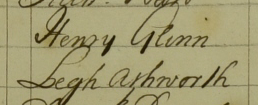 Henry Glinn
Legh Ashworth